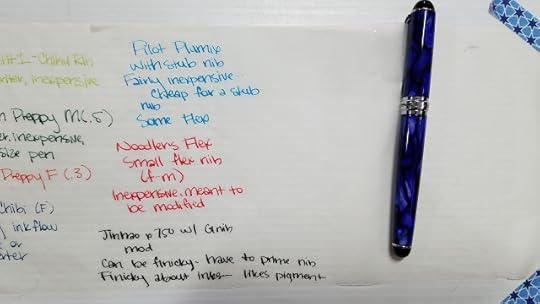 Chibi Rin
inexpensive
Preppy M (.5)
inexpensive,
size pen
Preppy F (.3)
Chibi (F)
ink flow
or
Pilot Plumix
with stub nib
Fairly inexpensive-
cheap for a stub
nib
Some flex
Noodlers Flex
Small flex nib
(f-m)
Inexpensive, meant to
be modified
Jinhao x750 w/ Gnib
mod
can be finicky- have to prime nib
Finicky about inks- likes pigment